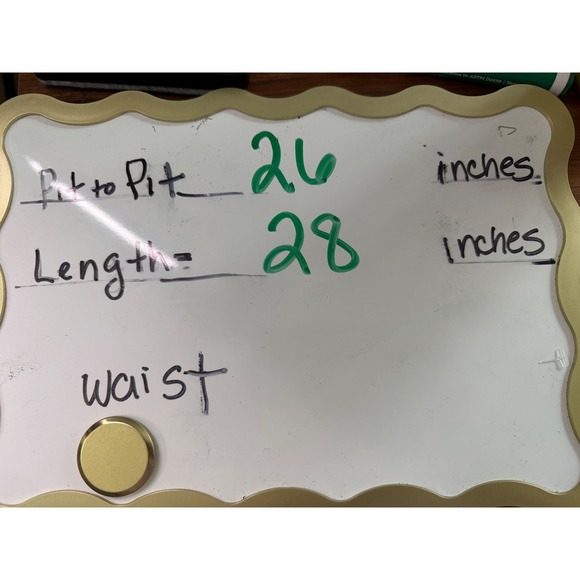 Pit to Pit 26 inches.
Length= 28 inches
waist